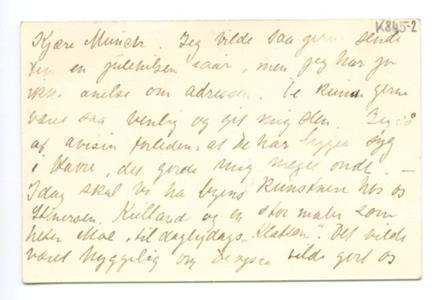 K845-2
Kjære Munch. Jeg vilde saa gerne sende
Dem en julehilsen iaar, men jeg har jo
ikke anelse om adressen. De kunde gerne
været saa venlig og git mig den. Jeg så
af avisen forleden, at De har ligget syg
i Havre, det gjorde mig meget ondt. —
Idag skal vi ha byens kunstnere hos os
Stinersen, Kielland og en stor maler som
heter Moe, til daglydags "Klatten". Det vilde
været hyggelig om De ogsaa vilde gjort os